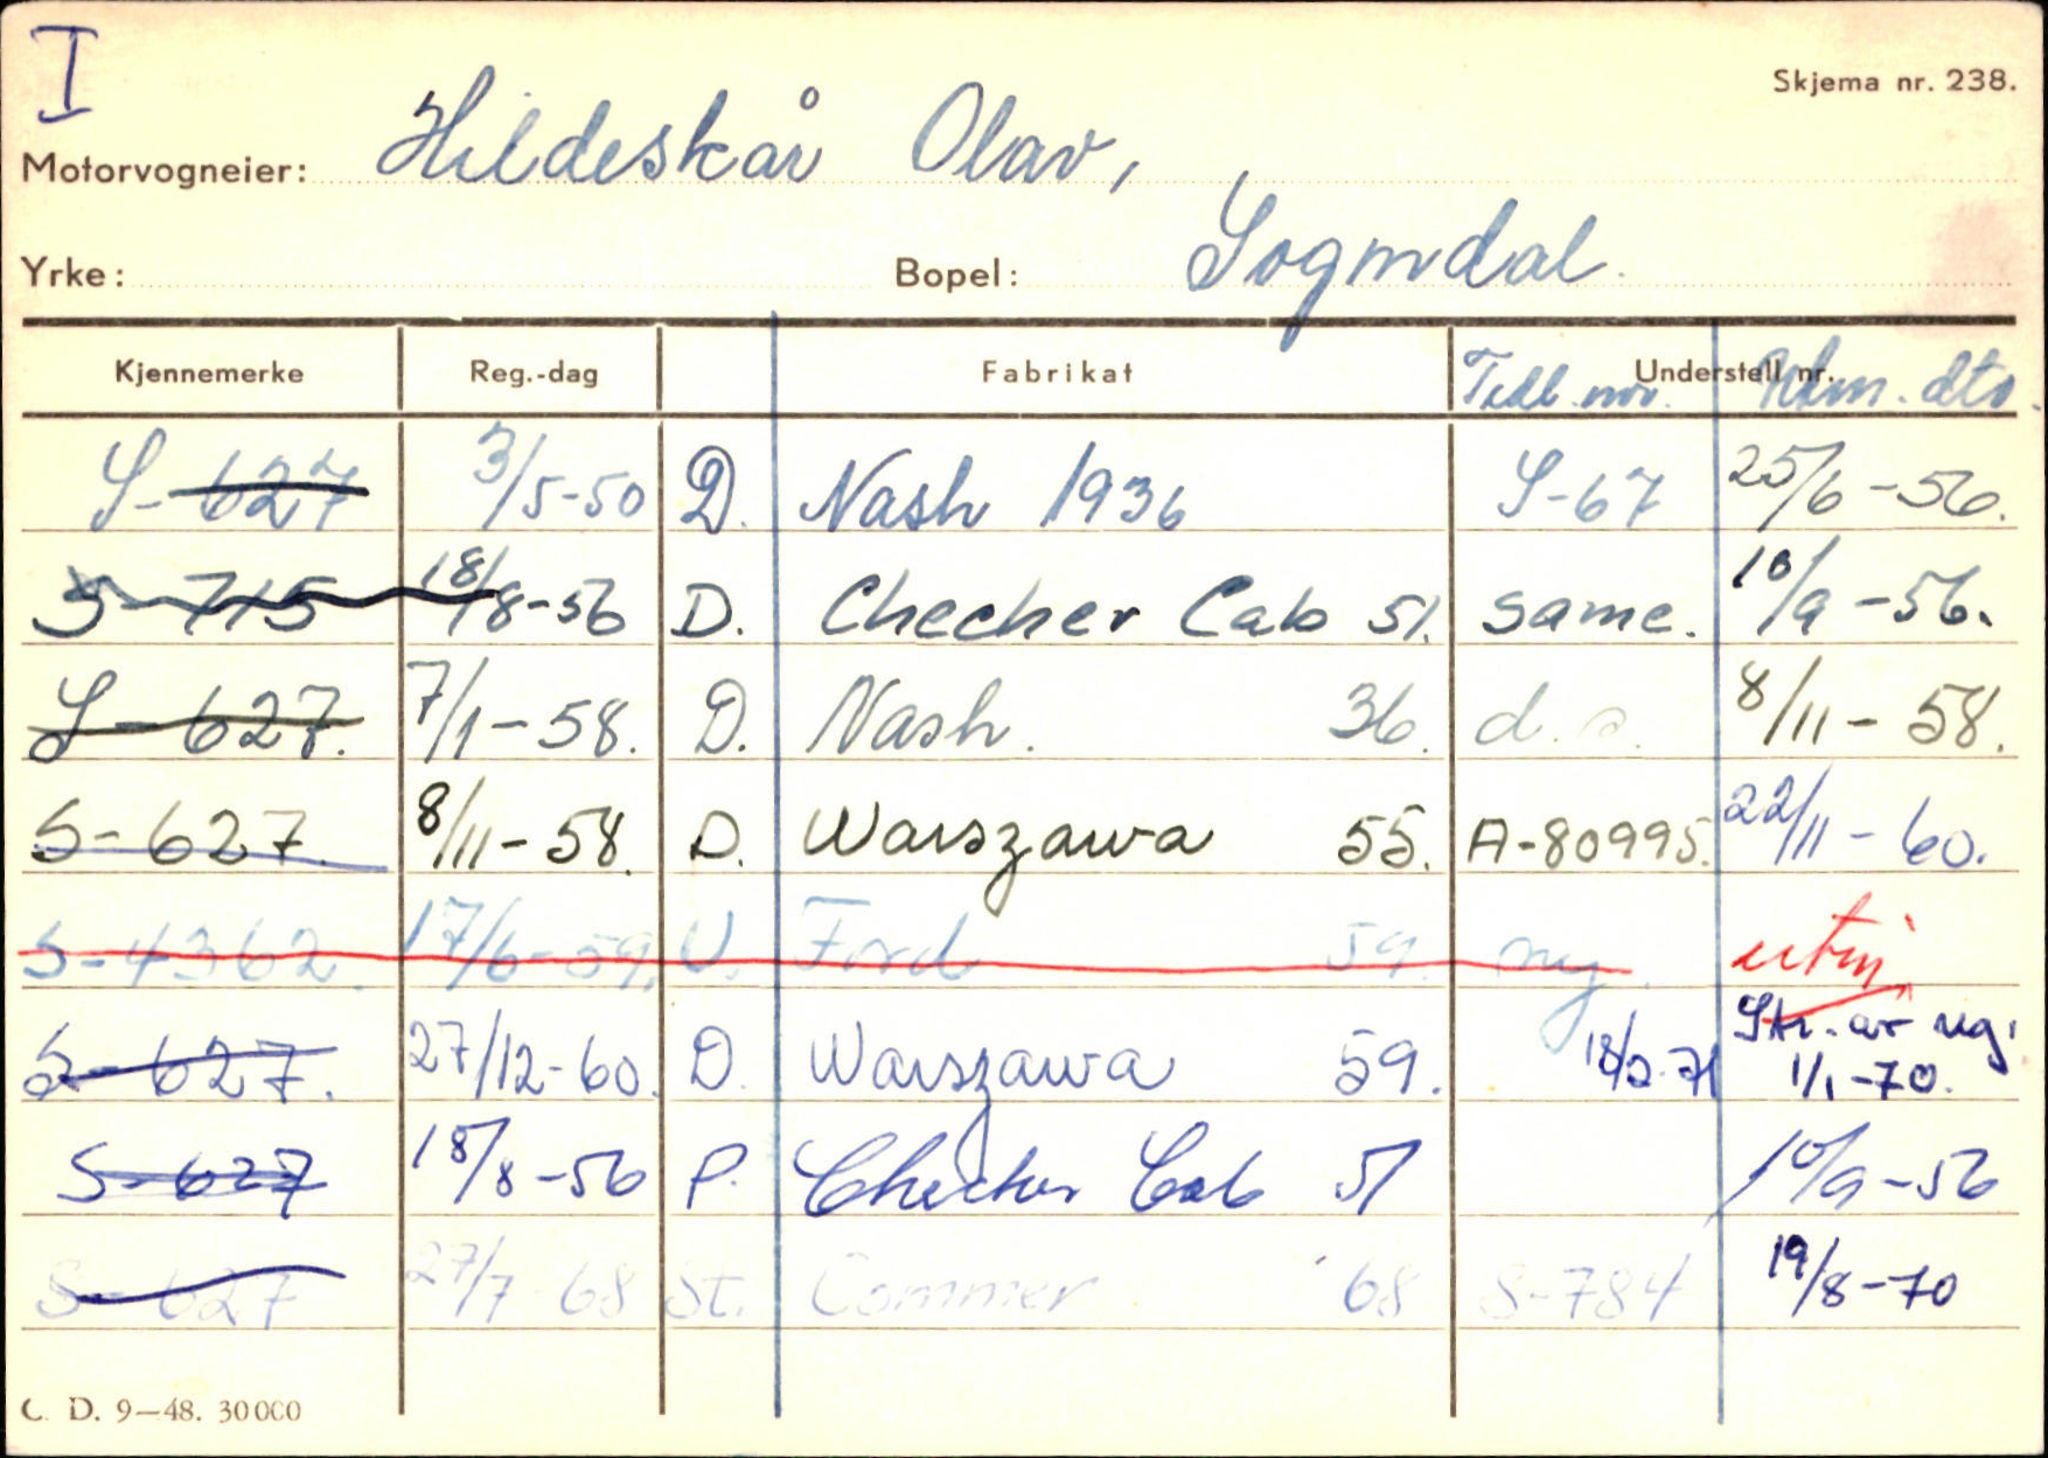 I
Skjema nr. 238.
Motorvogneier: Hildeskår Olav,
Yrke: Bopel: Sogndal.
Kjennemerke Reg.-dag Fabrikat Understell nr.
Tidl. nr. dto.
S-627 3/5-50 D. Nash 1936 S-67 25/6-56.
S-715 18/8-56 D. Checher Cab 51. Same. 10/9-56.
S-627. 7/1-58. D. Nash. 36. d.o. 8/11-58.
S-627. 8/11-58. D. Warszawa 55. A-80995. 22/11-60.
S-4362. 17/6-59. V. Ford 59. ny.
S-627. 27/12-60. D. Warszawa 59. 18/2-71 Str. av reg. 1/1-70.
S-627 18/8-56 P. Checker Cab 51 10/9-56
S-627 27/7 68 St. Commer 68 S-784 19/8-70
C. D. 9—48. 30000